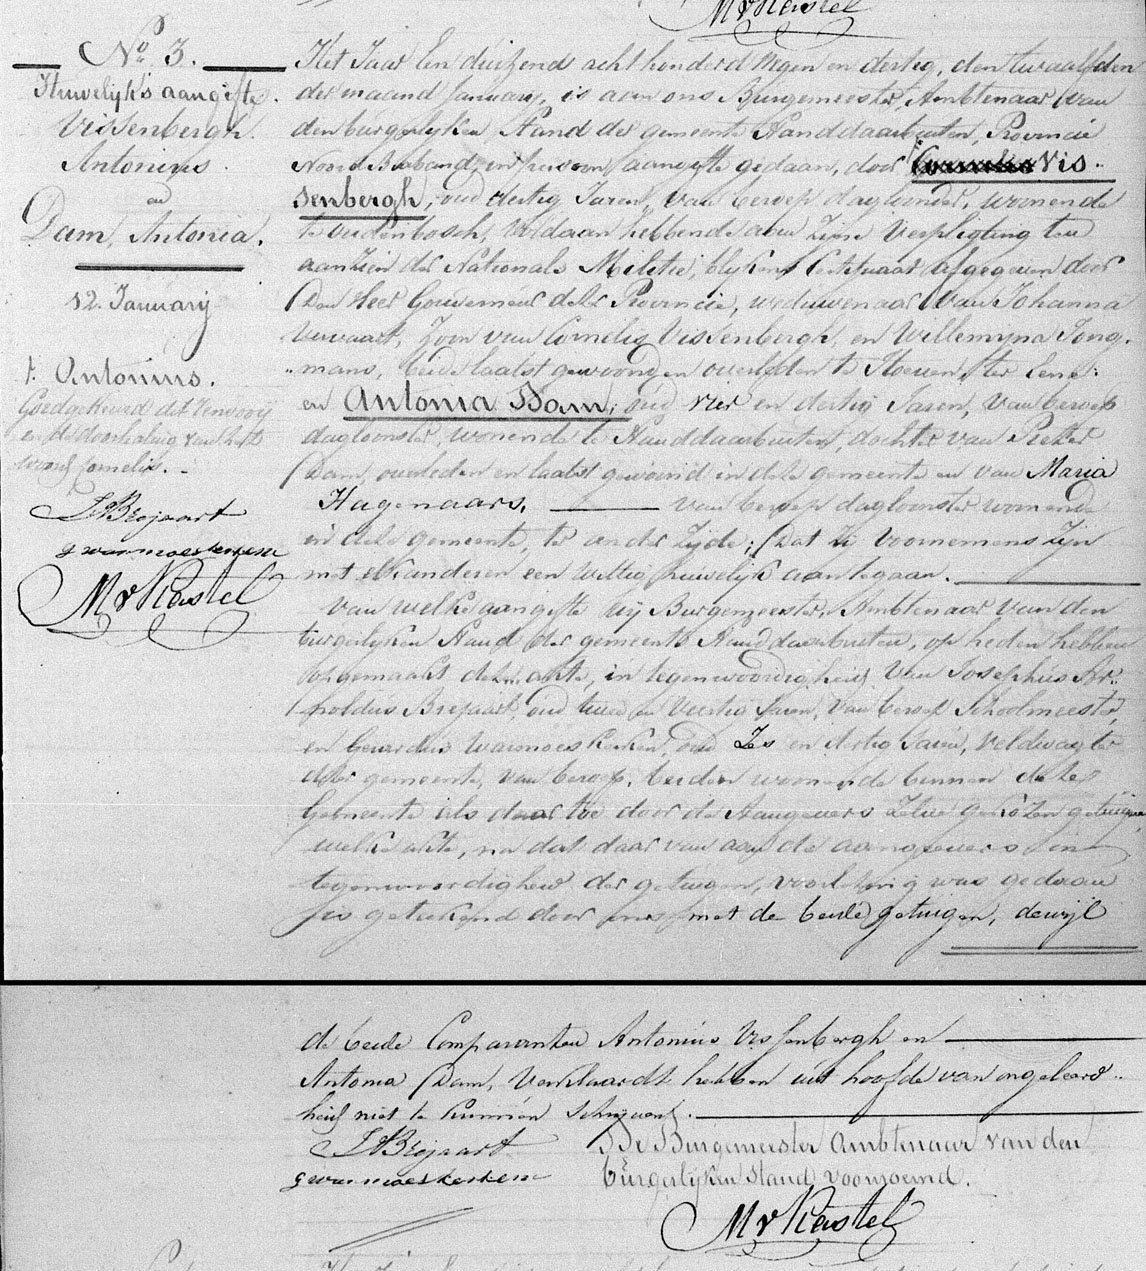 M v Kastel
No. 3.
Huwelijks aangifte.
Vissenbergh
Antonius
en
Dam, Antonia.
12. Januarij
Antonius.
Goedgekeurd dit renvooij
en de doorhaling van het
woord Cornelis.
JABrojaart
g van moeskerken
M v Kastel
Het Jaar Een duizend acht honderd Negen en dertig, den twaalfden
der maand Januarij, is aan ons Burgemeester Ambtenaar van
den burgerlyken Stand der gemeente Standdaarbuiten, Provincie
Noord Braband, in persoon aangifte gedaan, door Vis
senbergh, oud dertig Jaren, van beroep daglooner, wonende
te oudenbosch, voldaan hebbende aan zijne Verpligting ten
aanzien der Nationale Militie, blykens Certificaat afgegeven door
Den Heer Gouverneur dezer Provincie, weduwenaar van Johanna
vervaart, Zoon van Cornelis Vissenbergh, en Willemyna Jong-
mans, beide laatst gewoond en overleden te Hoeven, ter eene:
en Antonia Dam, oud vier en dertig Jaren, van beroep
dagloonster, wonende te Standdaarbuiten, dochter van Pieter
Dam, overleden en laatst gewoond in deze gemeente en van Maria
Hagenaars, van beroep dagloonster wonende
in deze gemeente, ter ander Zijde; Dat Zij Voornemens Zijn
met elkanderen een Wettig huwelijk aan te gaan.
Van welke aangifte wij Burgemeester, Ambtenaar van den
burgerlyken Stand der gemeente Standdaarbuiten, op heden hebben
opgemaakt deze akte, in tegenwoordigheid van Josephus Ar-
noldus Brojaart, oud twee en Veertig Jaren, van beroep Schoolmeester,
en Gerardus van moeskerken, oud Zes en dertig Jaren, veldwagter
dezer gemeente, van beroep, beiden woonende binnen deze
Gemeente als daar toe door de Aangevers Zelve gekozen getuigen
welke akte, na dat daar van aan de aangevers in
tegenwoordigheid der getuigen, voorlezing was gedaan
is geteekend door ons met de beide getuigen, dewijl
de beide Comparanten Antonius Vissenbergh en
Antonia Dam, Verklaardt hebben uit hoofde van ongeleerd-
heid niet te kunnen schryven.
JABrojaart
g van moeskerken
De Burgemeester Ambtenaar van den
burgerlyken Stand voornoemd.
M v Kastel